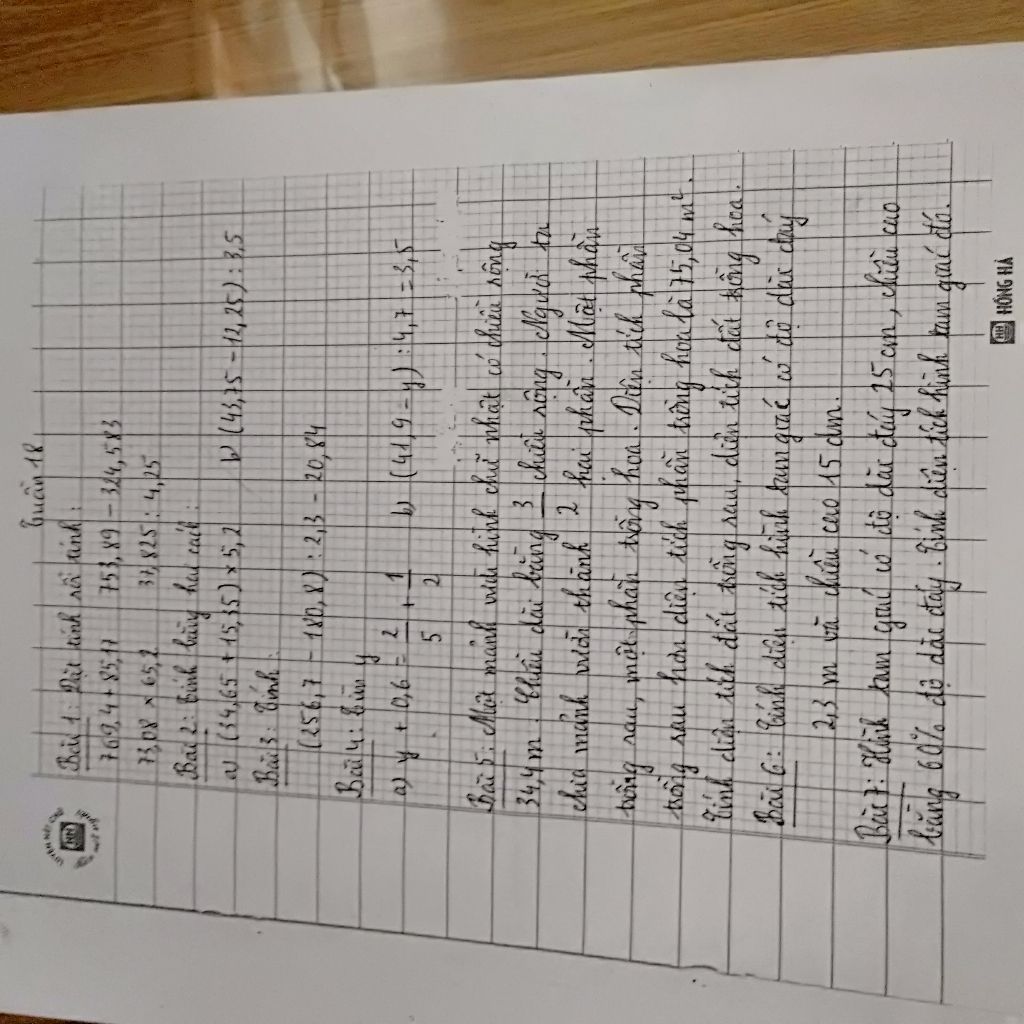 Tuần 18
Bài 1: Đặt tính rồi tính:
769,4 + 85,17 753,89 - 324,583
73,08 × 65,2 37,825 : 4,25
Bài 2: Tính bằng hai cách:
a) (34,65 + 15,35) × 5,2 b) (43,75 - 12,25) : 3,5
Bài 3: Tính:
(256,7 - 180,8) : 2,3 - 20,84
Bài 4: Tìm y
a) y + 0,6 = 2/5 + 1/2 b) (41,9 - y) : 4,7 = 3,5
Bài 5: Một mảnh vườn hình chữ nhật có chiều rộng
34,4 m. Chiều dài bằng 3/2 chiều rộng. Người ta
chia mảnh vườn thành hai phần. Một phần
trồng rau, một phần trồng hoa. Diện tích phần
trồng rau hơn diện tích phần trồng hoa là 75,04 m².
Tính diện tích đất trồng rau, diện tích đất trồng hoa.
Bài 6: Tính diện tích hình tam giác có độ dài đáy
2,3 m và chiều cao 15 dm.
Bài 7: Hình tam giác có độ dài đáy 25 cm, chiều cao
bằng 60% độ dài đáy. Tính diện tích hình tam giác đó.
HỒNG HÀ